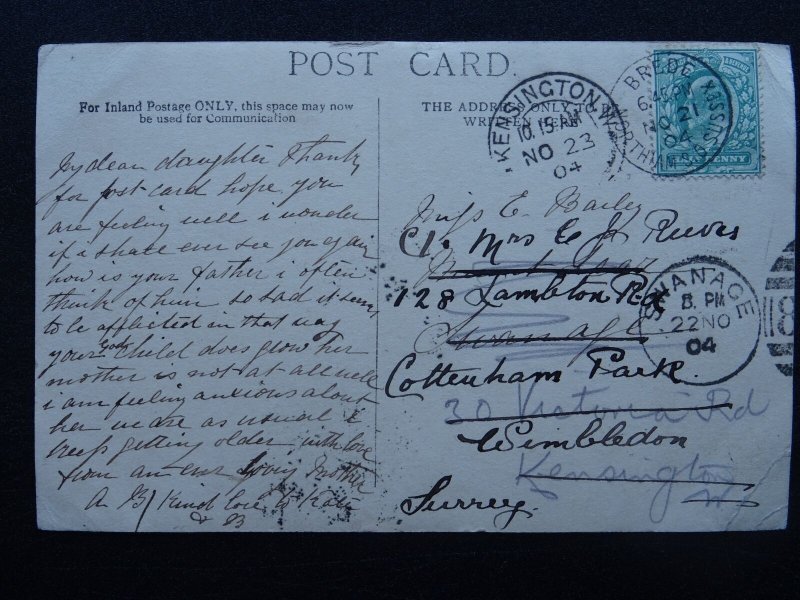 POST CARD.
For Inland Postage ONLY, this space may now
be used for Communication
THE ADDRESS ONLY TO BE
WRITTEN HERE
KENSINGTON.W
10.15 AM
NO 23
04
BREDE
NO 21
04
NORTHIAM SUSSEX
PENNY
SWANAGE
8. PM
22 NO
04
My dear daughter Thank
for post card hope you
are feeling well i wonder
if i shall ever see you again
how is your father i often
think of him so sad it seem
to be afflicted in that way
your God Child does grow her
mother is not at all well
i am feeling anxious about
her we are as usual i
keep getting older with love
from an ever loving Mother
A B/ Kind love to Kate
& B
Miss E. Bailey
C/. Mrs C J Reeves
128 Lambton Rd
Swanage
Cottenham Park.
30 Victoria Rd
Wimbledon
Kensington
W.
Surrey.